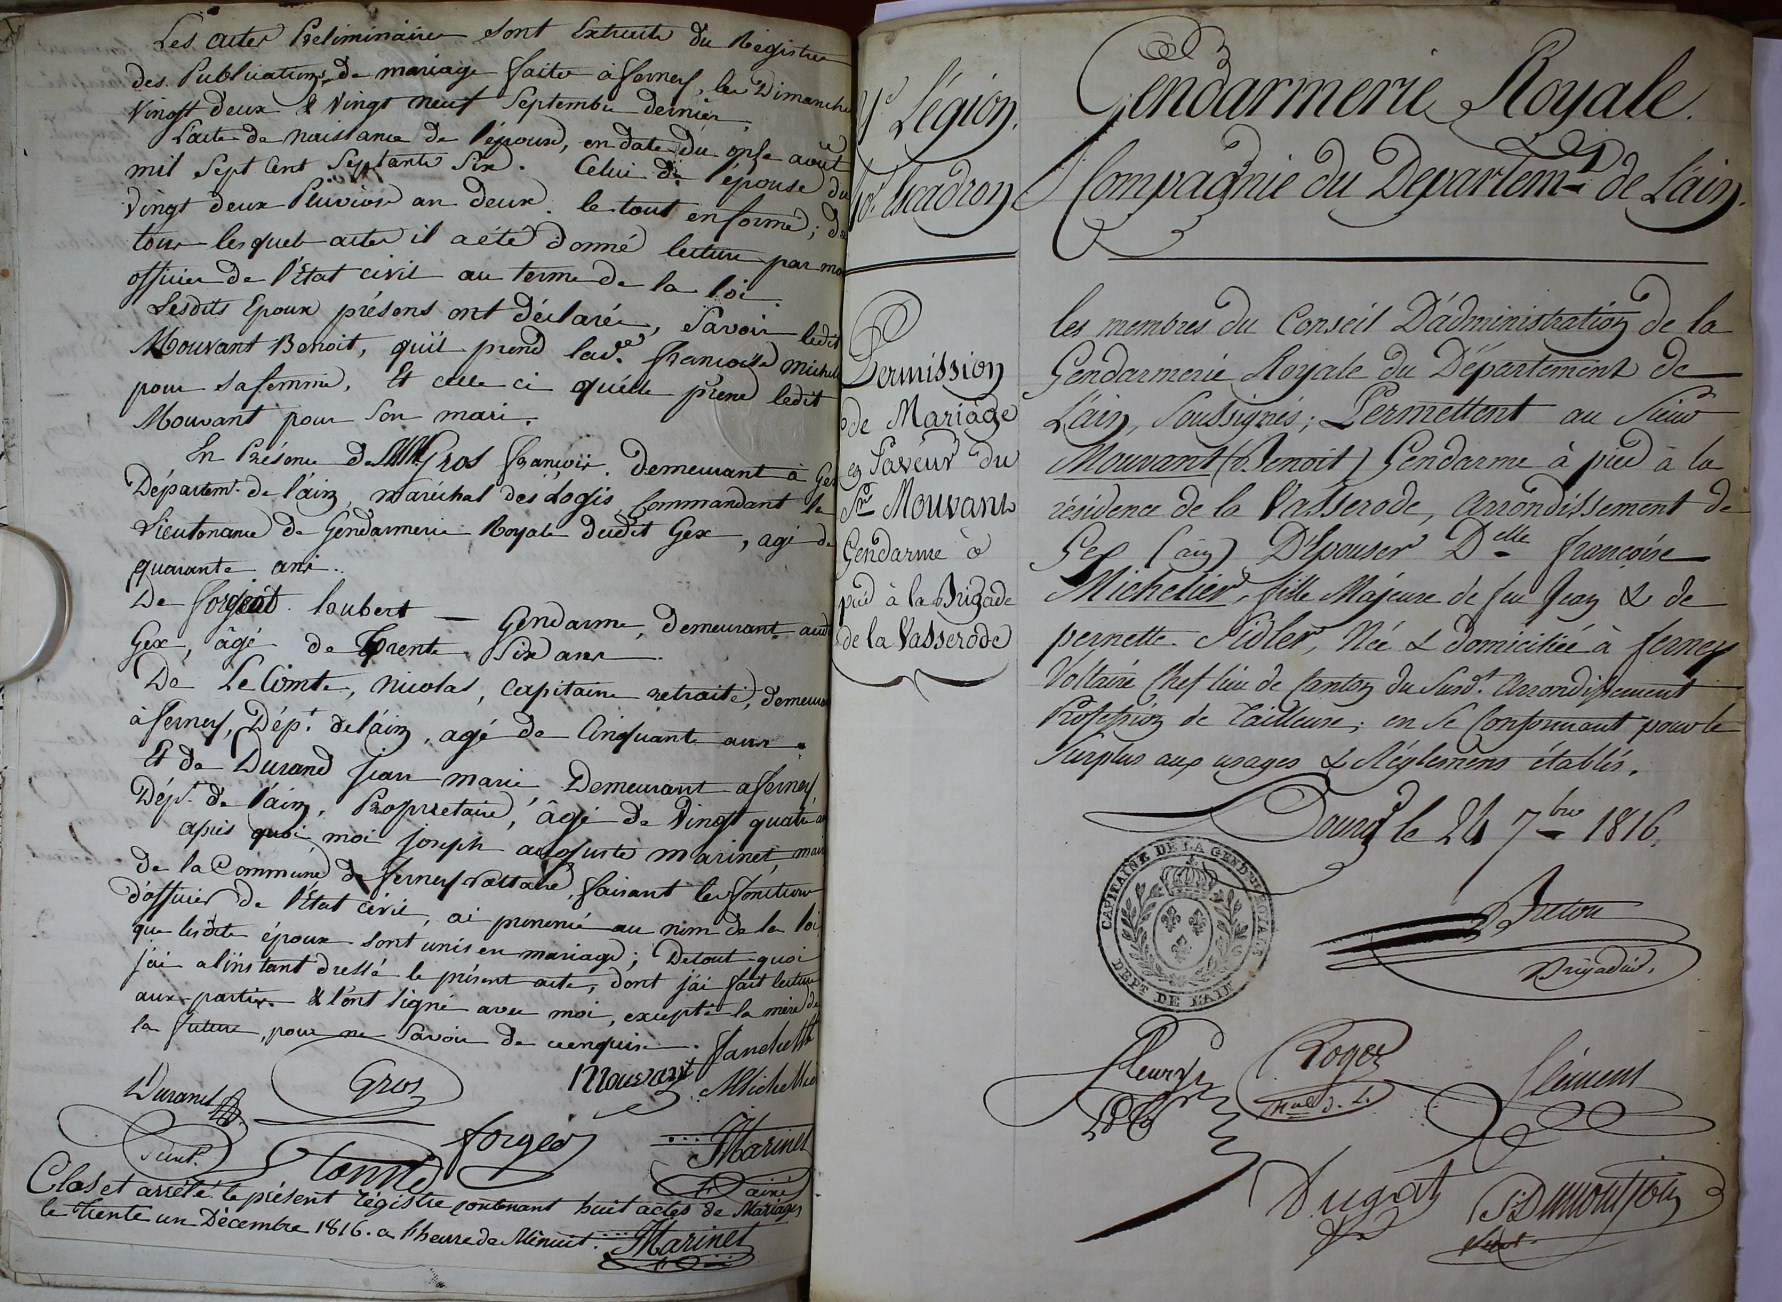 Les actes Preliminaires sont Extraits du Régistre
des Publications de mariage faites à ferney, les Dimanche
Vingt deux & Vingt neuf Septembre dernier.
L'acte de naissance de l'époux, en date du onze août
mil Sept Cent Septante Six. Celui de l'épouse du
Vingt deux Pluviose an deux. le tout en forme; de
tous lesquels actes il a été donné lecture par moi
officier de l'état civil au terme de la loi.
Lesdits Epoux présens ont déclarés, Savoir ledit
Mouvant Benoit, qu'il prend lade. francoise michel
pour sa femme, Et celle ci qu'elle prend ledit
Mouvant pour Son mari.
En Présence de Gros françois. demeurant à Gex
Départemt. de l'ain, maréchal des Logis Commandant la
Lieutenance de Gendarmerie Royale dudit Gex, agé de
quarante ans..
De forgeot. laubert — Gendarme, demeurant audit
Gex, âgé de Trente Six ans.
De Le Comte, nicolas, Capitaine retraité, demeurant
à ferney, Dépt. de l'ain, agé de Cinquante ans.
Et de Durand jean marie, Demeurant a ferney
Dépt. de l'ain, Proprietaire, âgé de Vingt quatre ans
apres quoi moi joseph auguste marinet, maire
de la Commune de ferney voltaire, faisant les fonctions
d'officier de l'état civil, ai prononcé au nom de la loi
que lesdits époux sont unis en mariage; De tout quoi
j'ai a l'instant dressé le présent acte, dont j'ai fait lecture
aux parties & l'ont signé avec moi, excepté la mère de
la future, pour ne Savoir de ce enquise. fanchette
Durand Gros Mouvant Michellier
forgeot Marinet
Comte Maire
Clos et arrêté le présent régistre contenant huit actes de Mariages
le trente un Décembre 1816. a l'heure de Minuit. Marinet
Légion.
Escadron
Permission
de Mariage
en faveur du
Sr. Mouvant
Gendarme à
pied à la Brigade
de la Vasserode
Gendarmerie Royale.
Compagnie du Departemt. de L'ain.
les membres du Conseil D'administration de la
Gendarmerie Royale du Département de
L'ain, Soussignés; Permettent au Sieur
Mouvant (Benoit) Gendarme à pied à la
résidence de la Vasserode, arrondissement de
Gex (ain) D'Epouser Delle. françoise
Michelier, fille Majeure de feu Jean & de
pernette Sidler, Née & domiciliée à ferney
Voltaire Chef lieu de Canton du Susdt. arrondissement
Profession de Tailleuse; en se Conformant pour le
Surplus aux usages & Réglemens établis.
Bourg le 24 7bre. 1816.
CAPITAINE DE LA GEND'RIE ROYALE
DEPT. DE L'AIN
Breton
Brigadier.
Fleury Roger Clément
Mal. d. L.
Dugat Dumoutson